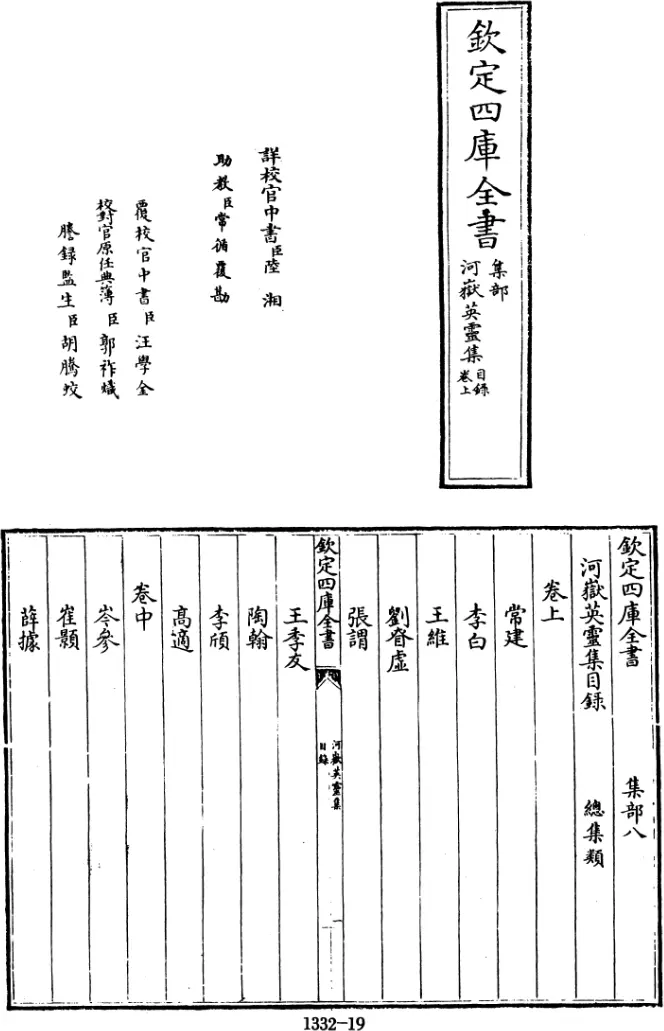 欽定四庫全書
集部
河嶽英靈集
目錄
卷上
詳校官中書臣陸湘
助教臣常循覆勘
覆校官中書臣汪學金
校對官原任典簿臣郭祚熾
謄録監生臣胡騰蛟
欽定四庫全書 集部八
河嶽英靈集目録 總集類
卷上
常建
李白
王維
劉眘虛
張謂
欽定四庫全書
河嶽英靈集
目錄
一
王季友
陶翰
李頎
高適
卷中
岑參
崔顥
薛據
1332-19